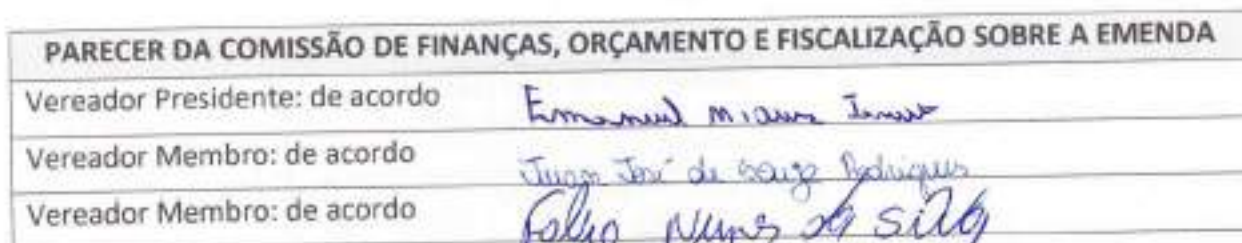 PARECER DA COMISSÃO DE FINANÇAS, ORÇAMENTO E FISCALIZAÇÃO SOBRE A EMENDA
Vereador Presidente: de acordo Emanuel
Vereador Membro: de acordo José de Souza Rodrigues
Vereador Membro: de acordo Fabio Nunes da Silva